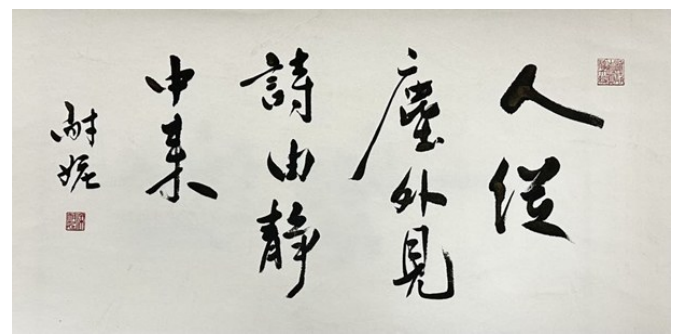 人從
塵外見
詩由靜
中来
耐姫